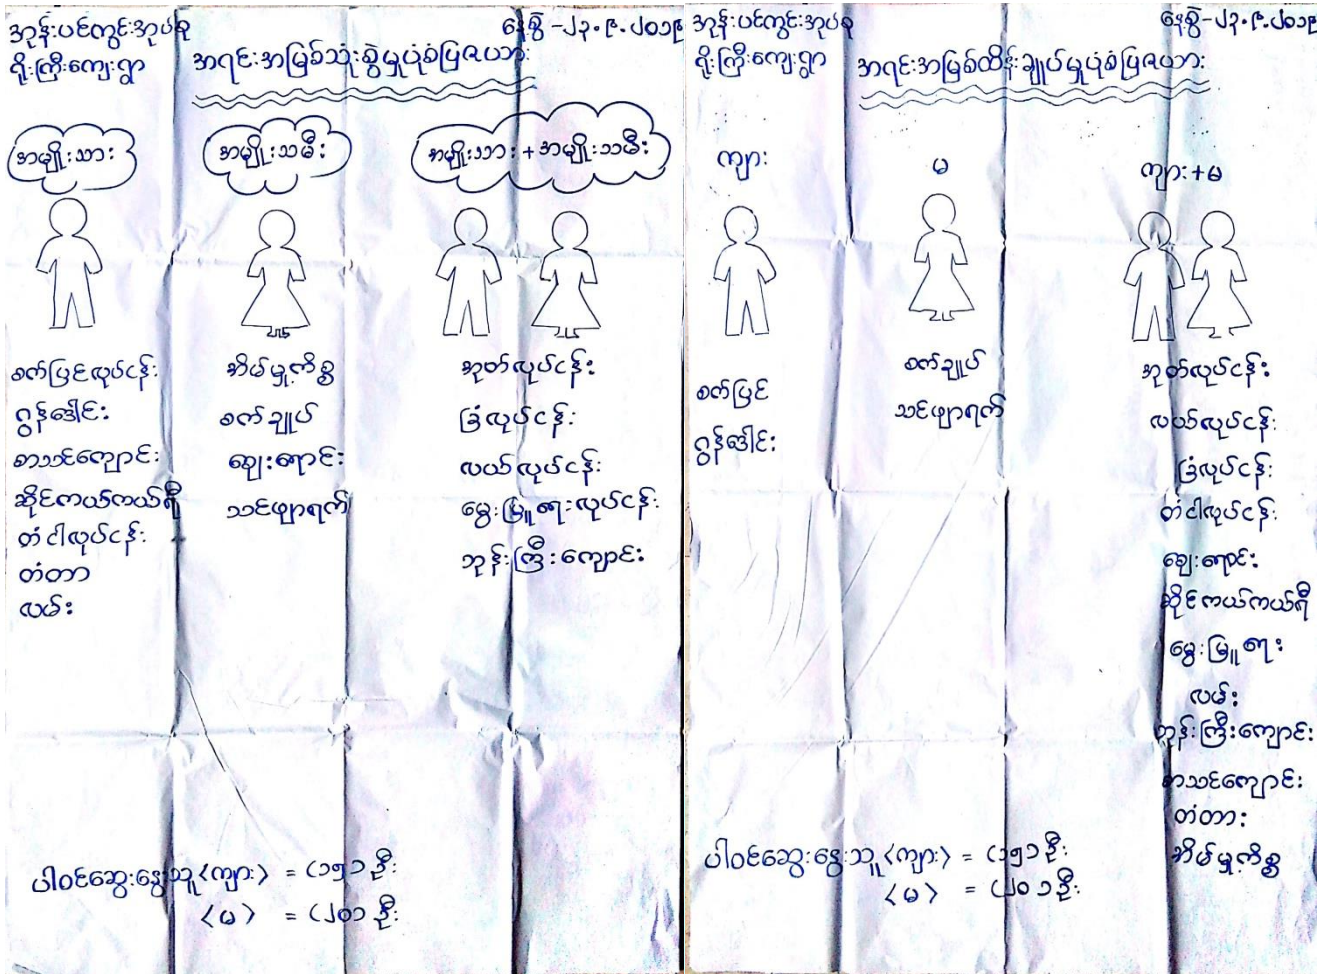 အုန်းပင်ကွင်းအုပ်စု
ရိုးကြီးကျေးရွာ
နေ့စွဲ - ၂၃.၉.၂၀၁၉
အရင်းအမြစ်သုံးစွဲမှုပုံစံပြဇယား
အမျိုးသား
အမျိုးသမီး
အမျိုးသား + အမျိုးသမီး
စက်ပြင်လုပ်ငန်း
ဂွန်ဒေါင်း
စာသင်ကျောင်း
ဆိုင်ကယ်ကယ်ရီ
တံငါလုပ်ငန်း
တံတာ
လမ်း
အိမ်မှုကိစ္စ
စက်ချုပ်
ဈေးရောင်း
သင်ဖျာရက်
အုတ်လုပ်ငန်း
ခြံလုပ်ငန်း
လယ်လုပ်ငန်း
မွေးမြူရေးလုပ်ငန်း
ဘုန်းကြီးကျောင်း
ပါဝင်ဆွေးနွေးသူ <ကျား> = (၁၅) ဦး
<မ> = (၂၀) ဦး
အုန်းပင်ကွင်းအုပ်စု
ရိုးကြီးကျေးရွာ
နေ့စွဲ - ၂၃.၉.၂၀၁၉
အရင်းအမြစ်ထိန်းချုပ်မှုပုံစံပြဇယား
ကျား
မ
ကျား + မ
စက်ပြင်
ဂွန်ဒေါင်း
စက်ချုပ်
သင်ဖျာရက်
အုတ်လုပ်ငန်း
လယ်လုပ်ငန်း
ခြံလုပ်ငန်း
တံငါလုပ်ငန်း
ဈေးရောင်း
ဆိုင်ကယ်ကယ်ရီ
မွေးမြူရေး
လမ်း
ဘုန်းကြီးကျောင်း
စာသင်ကျောင်း
တံတား
အိမ်မှုကိစ္စ
ပါဝင်ဆွေးနွေးသူ <ကျား> = (၁၅) ဦး
<မ> = (၂၀) ဦး